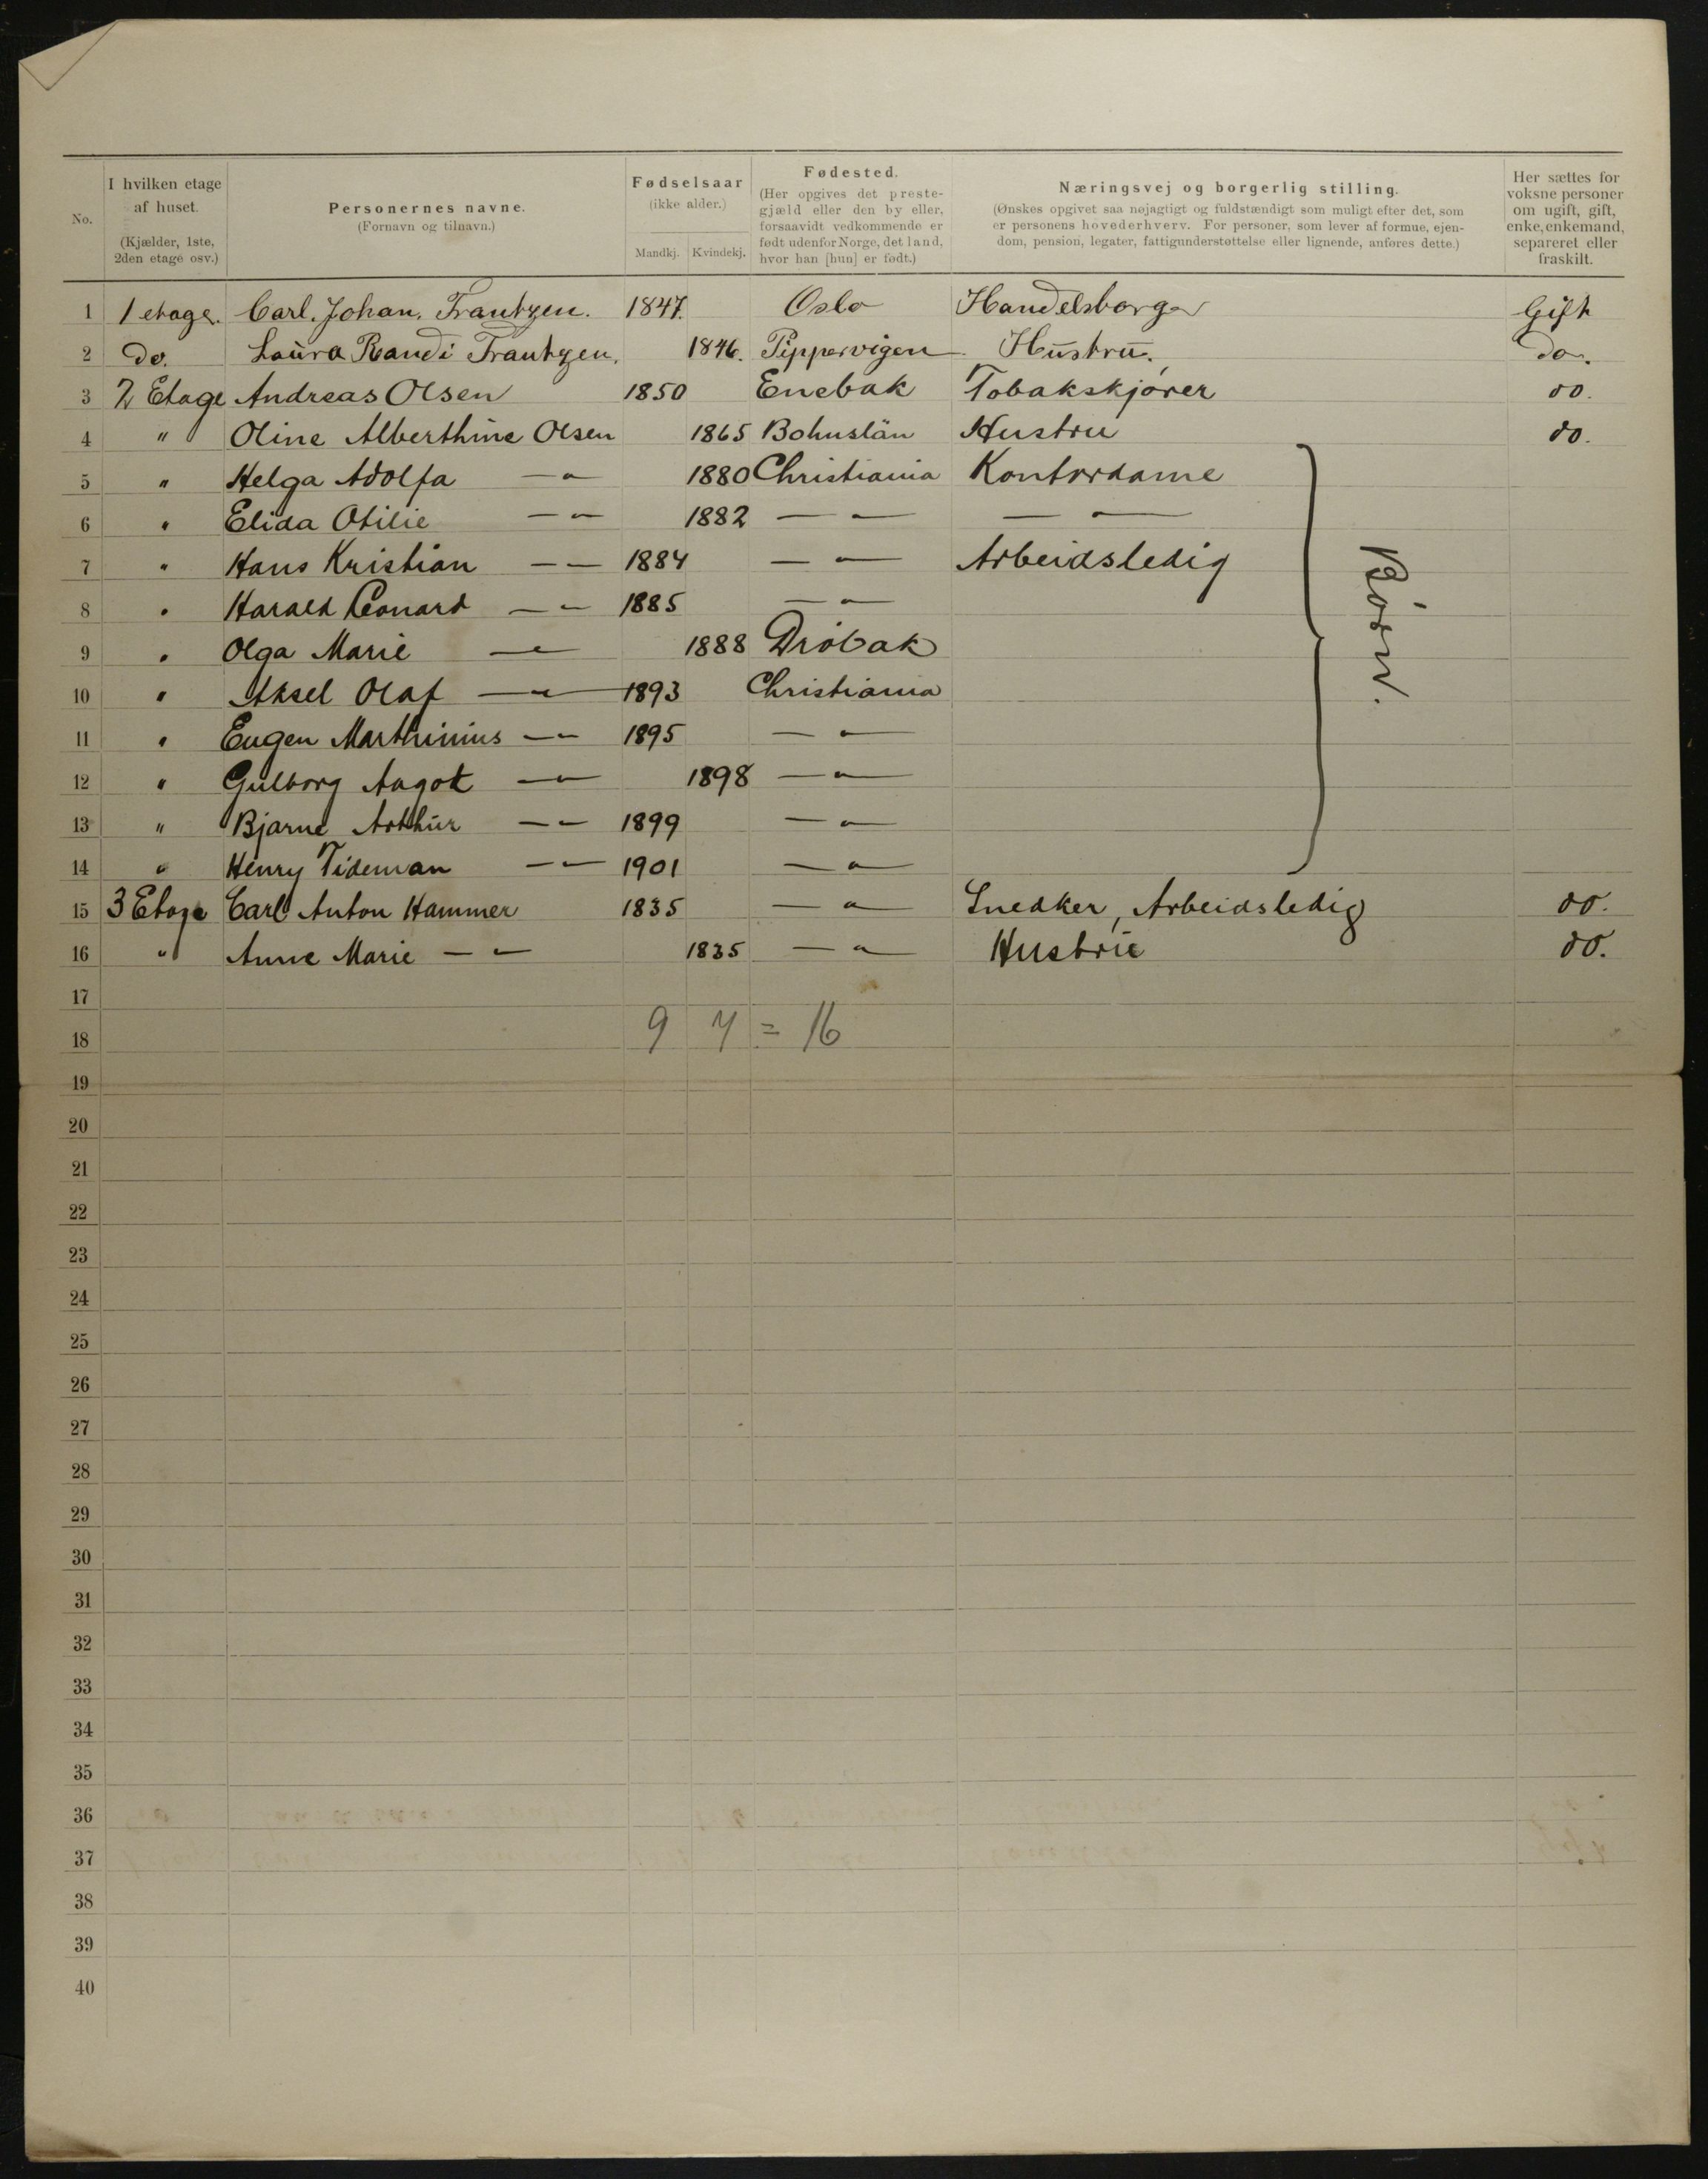 No. | I hvilken etage af huset. (Kjælder, 1ste, 2den etage osv.) | Personernes navne. (Fornavn og tilnavn.) | Fødselsaar (ikke alder.) Mandkj. Kvindekj. | Fødested. (Her opgives det prestegjæld eller den by eller, forsaavidt vedkommende er født udenfor Norge, det land, hvor han [hun] er født.) | Næringsvej og borgerlig stilling. (Ønskes opgivet saa nøjagtigt og fuldstændigt som muligt efter det, som er personens hovederhverv. For personer, som lever af formue, ejendom, pension, legater, fattigunderstøttelse eller lignende, anføres dette.) | Her sættes for voksne personer om ugift, gift, enke, enkemand, separeret eller fraskilt.
1 1 etage. Carl. Johan. Frantzen. 1847. Oslo Handelsborger Gift
2 do. Laura Randi Frantzen. 1846. Pippervigen Hustru. do.
3 2 Etage Andreas Olsen 1850 Enebak Tobakskjører do.
4 " Oline Alberthine Olsen 1865 Bohuslän Hustru do.
5 " Helga Adolfa — " — 1880 Christiania Kontordame
6 " Elida Otilie — " — 1882 — " — — " —
7 " Hans Kristian — " — 1884 — " — Arbeidsledig
8 " Harald Leonard — " — 1885 — " —
9 " Olga Marie — " — 1888 Drøbak
10 " Aksel Olaf — " — 1893 Christiania
11 " Eugen Marthinius — " — 1895 — " —
12 " Gulborg Aagot — " — 1898 — " —
13 " Bjarne Arthur — " — 1899 — " —
14 " Henry Tideman — " — 1901 — " —
Børn.
15 3 Etage Carl Anton Hammer 1835 — " — Snedker, Arbeidsledig do.
16 " Anne Marie — " — 1835 — " — Hustru do.
17
18 9 7 = 16
19
20
21
22
23
24
25
26
27
28
29
30
31
32
33
34
35
36
37
38
39
40